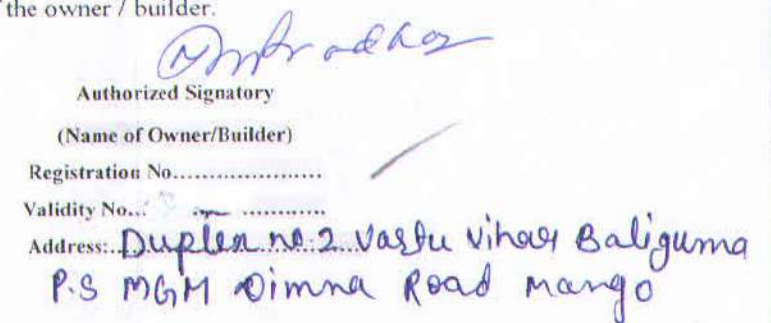 the owner / builder.
Authorized Signatory
(Name of Owner/Builder)
Registration No.....................
Validity No... ............
Address:..Duplex no.2 Vastu Vihar Baliguma
P.S MGM Dimna Road Mango